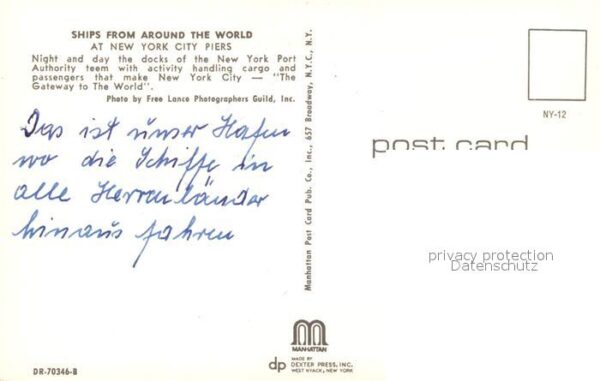 SHIPS FROM AROUND THE WORLD
AT NEW YORK CITY PIERS
Night and day the docks of the New York Port
Authority teem with activity handling cargo and
passengers that make New York City — "The
Gateway to The World".
Photo by Free Lance Photographers Guild, Inc.
Das ist unser Hafen
wo die Schiffe in
alle Herrenländer
hinaus fahren
Manhattan Post Card Pub. Co., Inc., 657 Broadway, N.Y.C., N.Y.
NY-12
post card
privacy protection
Datenschutz
MANHATTAN
dp
MADE BY
DEXTER PRESS, INC.
WEST NYACK, NEW YORK
DR-70346-B